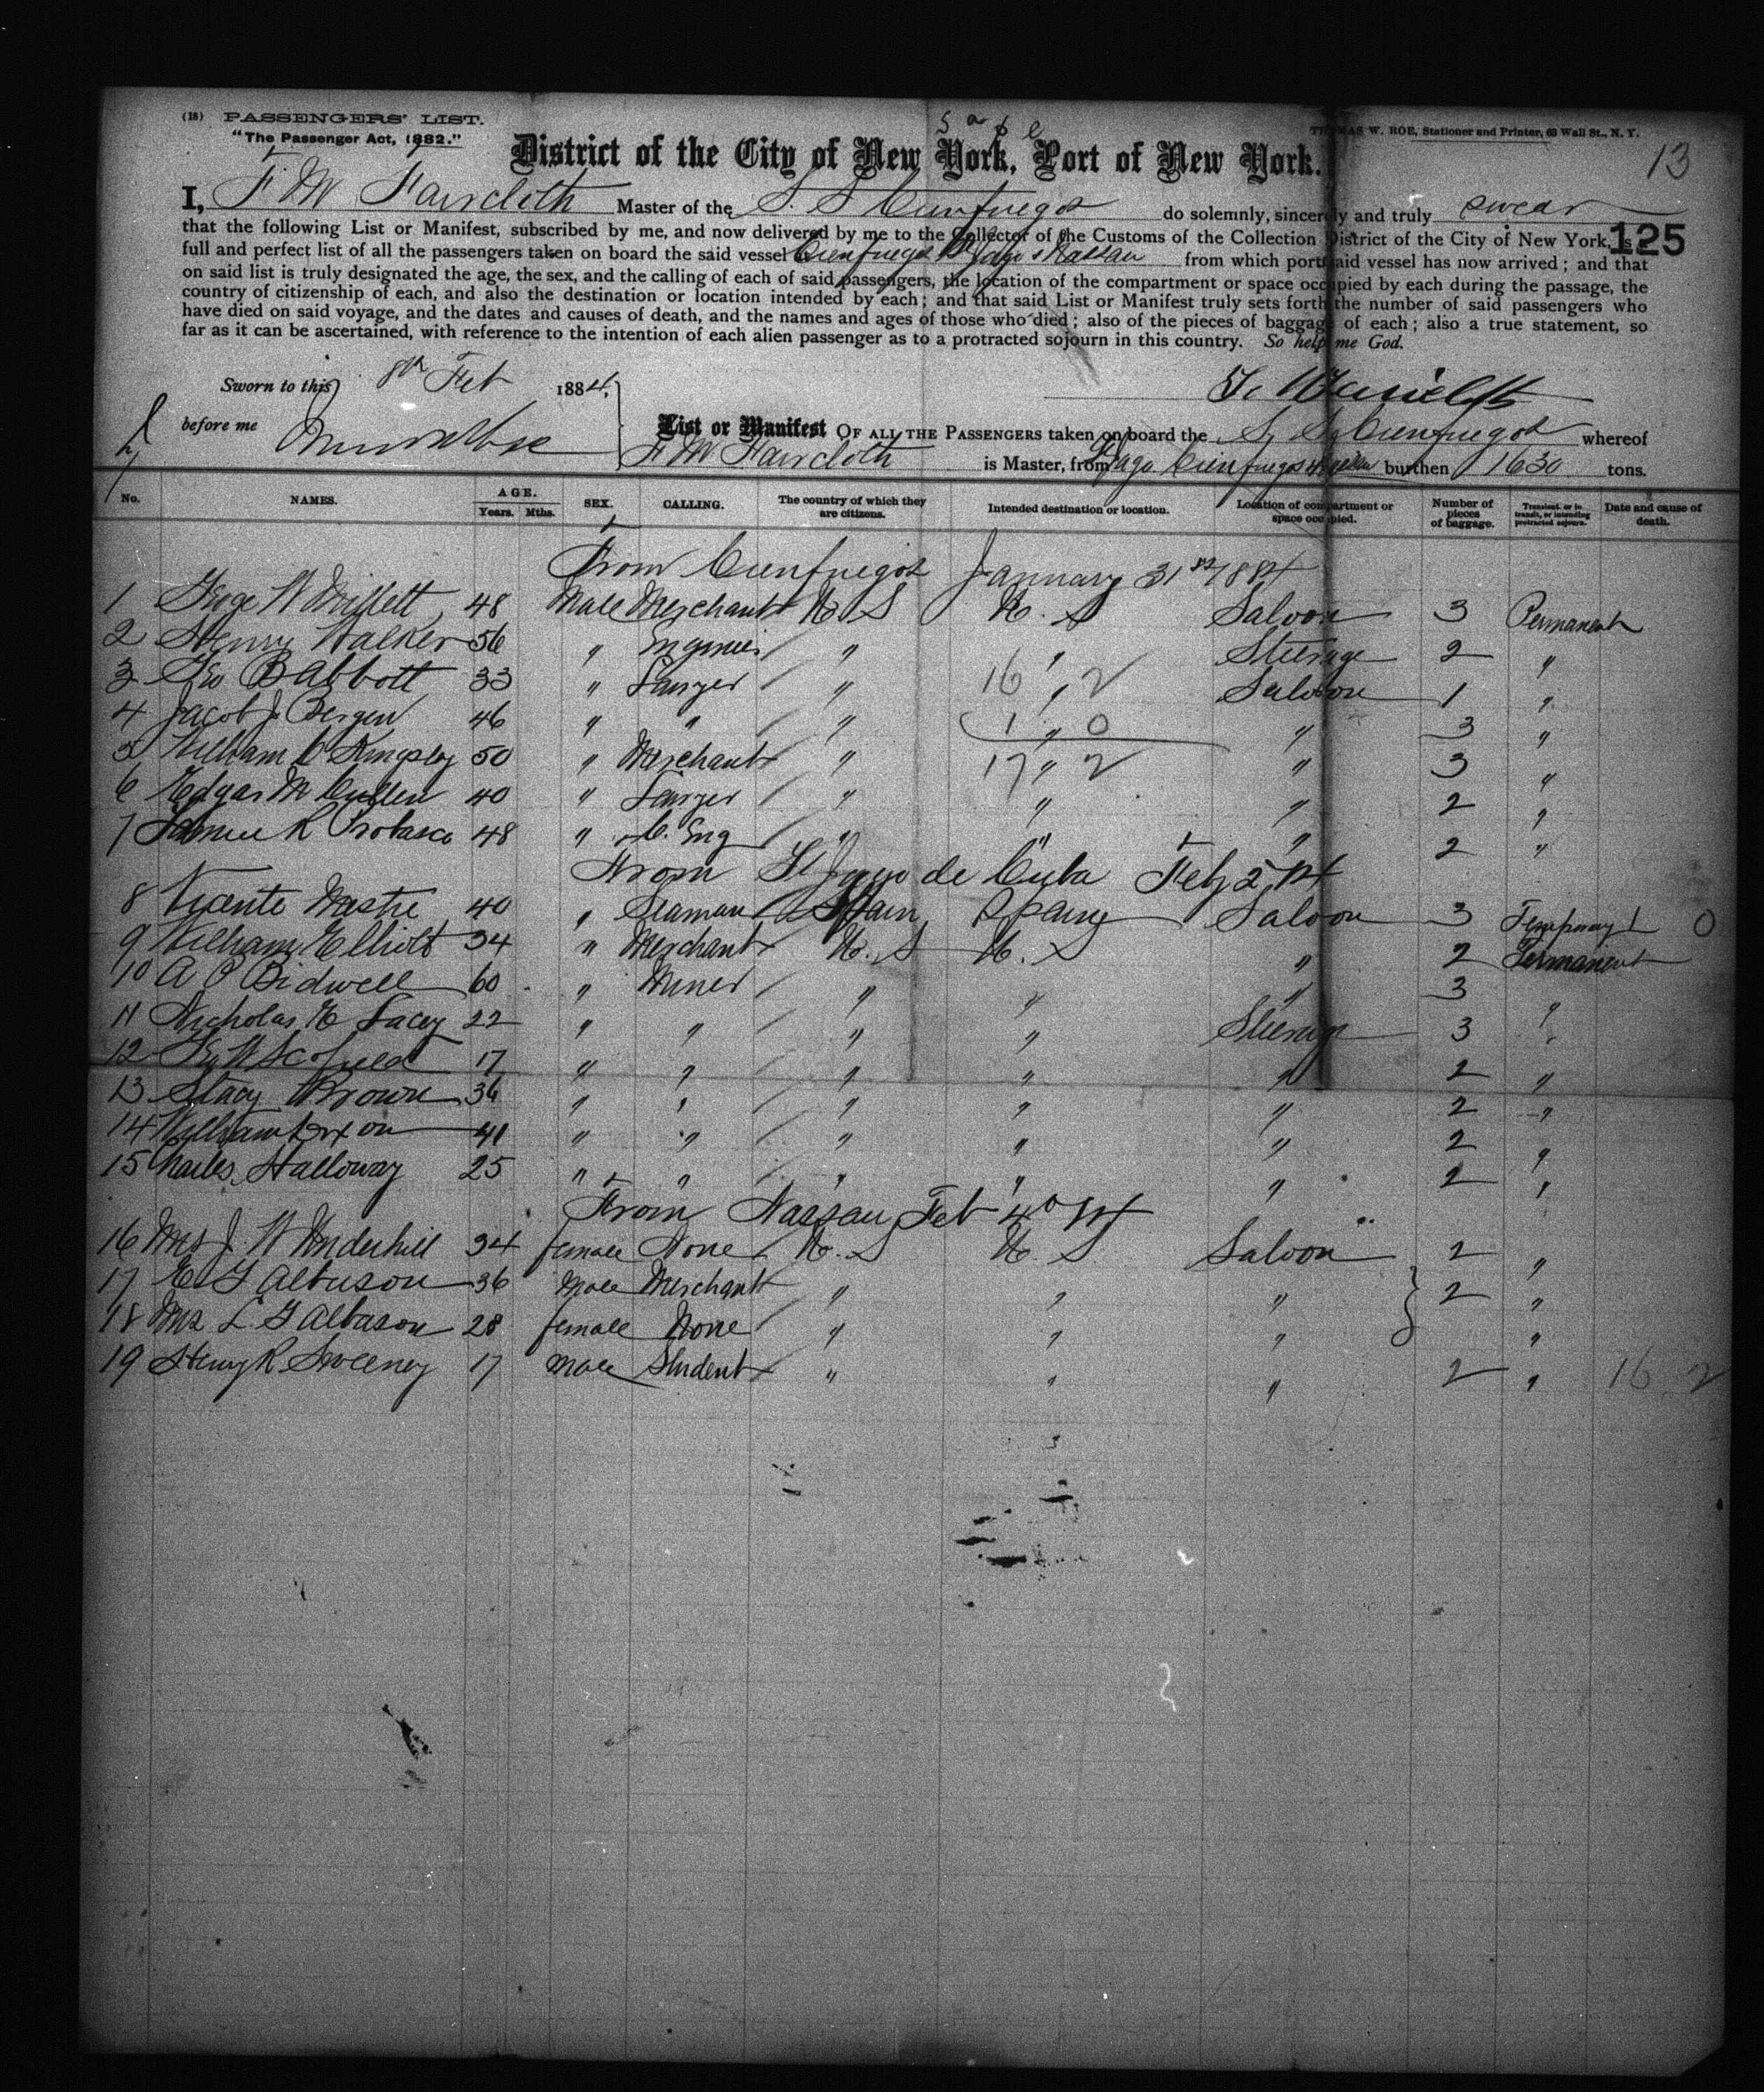 (18) PASSENGERS' LIST.
"The Passenger Act, 1882."
THOMAS W. ROE, Stationer and Printer, 63 Wall St., N. Y.
District of the City of New York, Port of New York.
13
I, F M Faircloth Master of the S. S Cienfuegos do solemnly, sincerely and truly swear
that the following List or Manifest, subscribed by me, and now delivered by me to the Collector of the Customs of the Collection District of the City of New York, is a
125
full and perfect list of all the passengers taken on board the said vessel Cienfuegos St Jago & Nassau from which port said vessel has now arrived; and that
on said list is truly designated the age, the sex, and the calling of each of said passengers, the location of the compartment or space occupied by each during the passage, the
country of citizenship of each, and also the destination or location intended by each; and that said List or Manifest truly sets forth the number of said passengers who
have died on said voyage, and the dates and causes of death, and the names and ages of those who died; also of the pieces of baggage of each; also a true statement, so
far as it can be ascertained, with reference to the intention of each alien passenger as to a protracted sojourn in this country. So help me God.
Sworn to this 8th Feb 1884,
before me
List or Manifest OF ALL THE PASSENGERS taken on board the S. S. Cienfuegos whereof
F M Faircloth is Master, from Cienfuegos burthen 1630 tons.
No. NAMES. AGE. Years. Mths. SEX. CALLING. The country of which they are citizens. Intended destination or location. Location of compartment or space occupied. Number of pieces of baggage. Transient, or in transit, or intending protracted sojourn. Date and cause of death.
From Cienfuegos January 31st 1884
1 Geoge W Millett 48 Male Merchant U. S U. S Saloon 3 Permanent
2 Henry Walker 56 " Engineer " " Steerage 2 "
3 Geo B Abbott 33 " Lawyer " 16 " 2 Saloon 1 "
4 Jacob J. Bergen 46 " " " 1 " 0 " 3 "
5 William C Kingsley 50 " Merchant " 17 " 2 " 3 "
6 Edgar M Cullen 40 " Lawyer " " " 2 "
7 R Probasco 48 " C. Eng " " " 2 "
From St Jago de Cuba Feb 2 84
8 Vicente Mastre 40 " Seaman Spain Spain Saloon 3 Temporary 1 0
9 William Elliott 34 " Merchant U. S U. S " 2 Permanent
10 A C Bidwell 60 " Miner " " " 3 "
11 Nicholas E Lacey 22 " " " " Steerage 3 "
12 Geo W Scofield 17 " " " " " 2 "
13 Stacy Brown 36 " " " " " 2 "
14 William 41 " " " " " 2 "
15 Charles Halloway 25 " " " " " 2 "
From Nassau Feb 4th 84
16 Mrs J. W Underhill 34 female None U. S U. S Saloon 2 "
17 E G Alburson 36 Male Merchant " " " 2 "
18 Mrs L. G Albason 28 female None " " " "
19 Henry R Sweeney 17 Male Student " " " 2 " 16 2